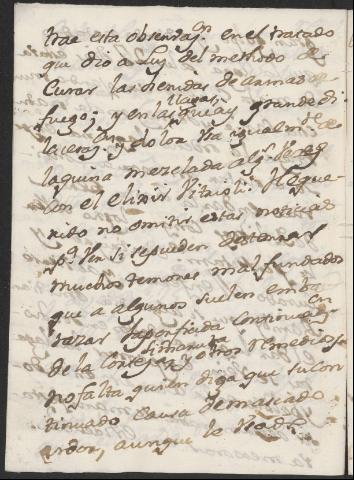 trae esta observas.on en el tratado
que dio a Luz del methodo de
Curar las heridas de armas de
fuego; y en las llagas, grande di
laceraz.on y dolor usa igualm.te de
la quina mezclada
con el elixir Vitrioli. He que
rido no omitir estas noticias
p.r ver si se pueden desterrar
muchos temores mal fundados
que a algunos suelen emba
razar
de la Corteza, y otros remedios, y
no falta quien diga que su con
tinuado causa demasiado
ardor, aunque le